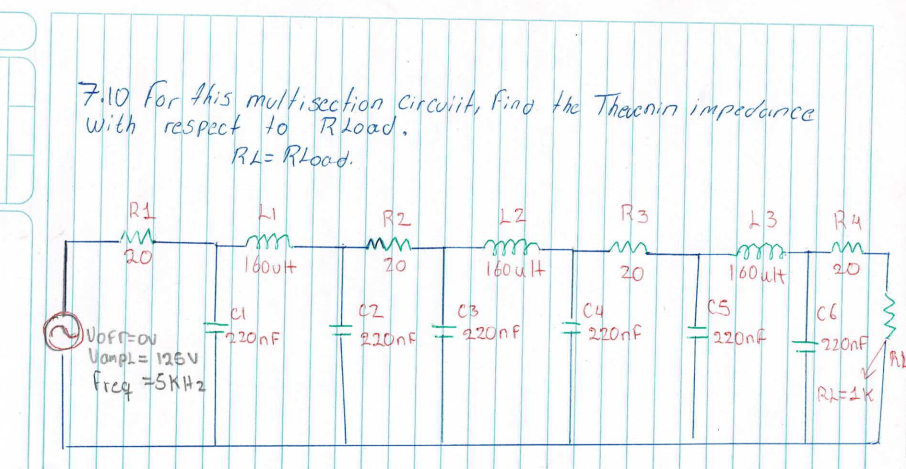 7.10 For this multisection Circuiit, find the Thevenin impedance
with respect to RLoad.
RL= RLoad.
R1
L1
R2
L2
R3
L3
R4
20
160uH
20
160uH
20
160uH
20
C1
220nF
C2
220nF
C3
220nF
C4
220nF
C5
220nF
C6
220nF
VOFF=0V
VampL= 125V
Freq =5KHz
RL
RL=1K